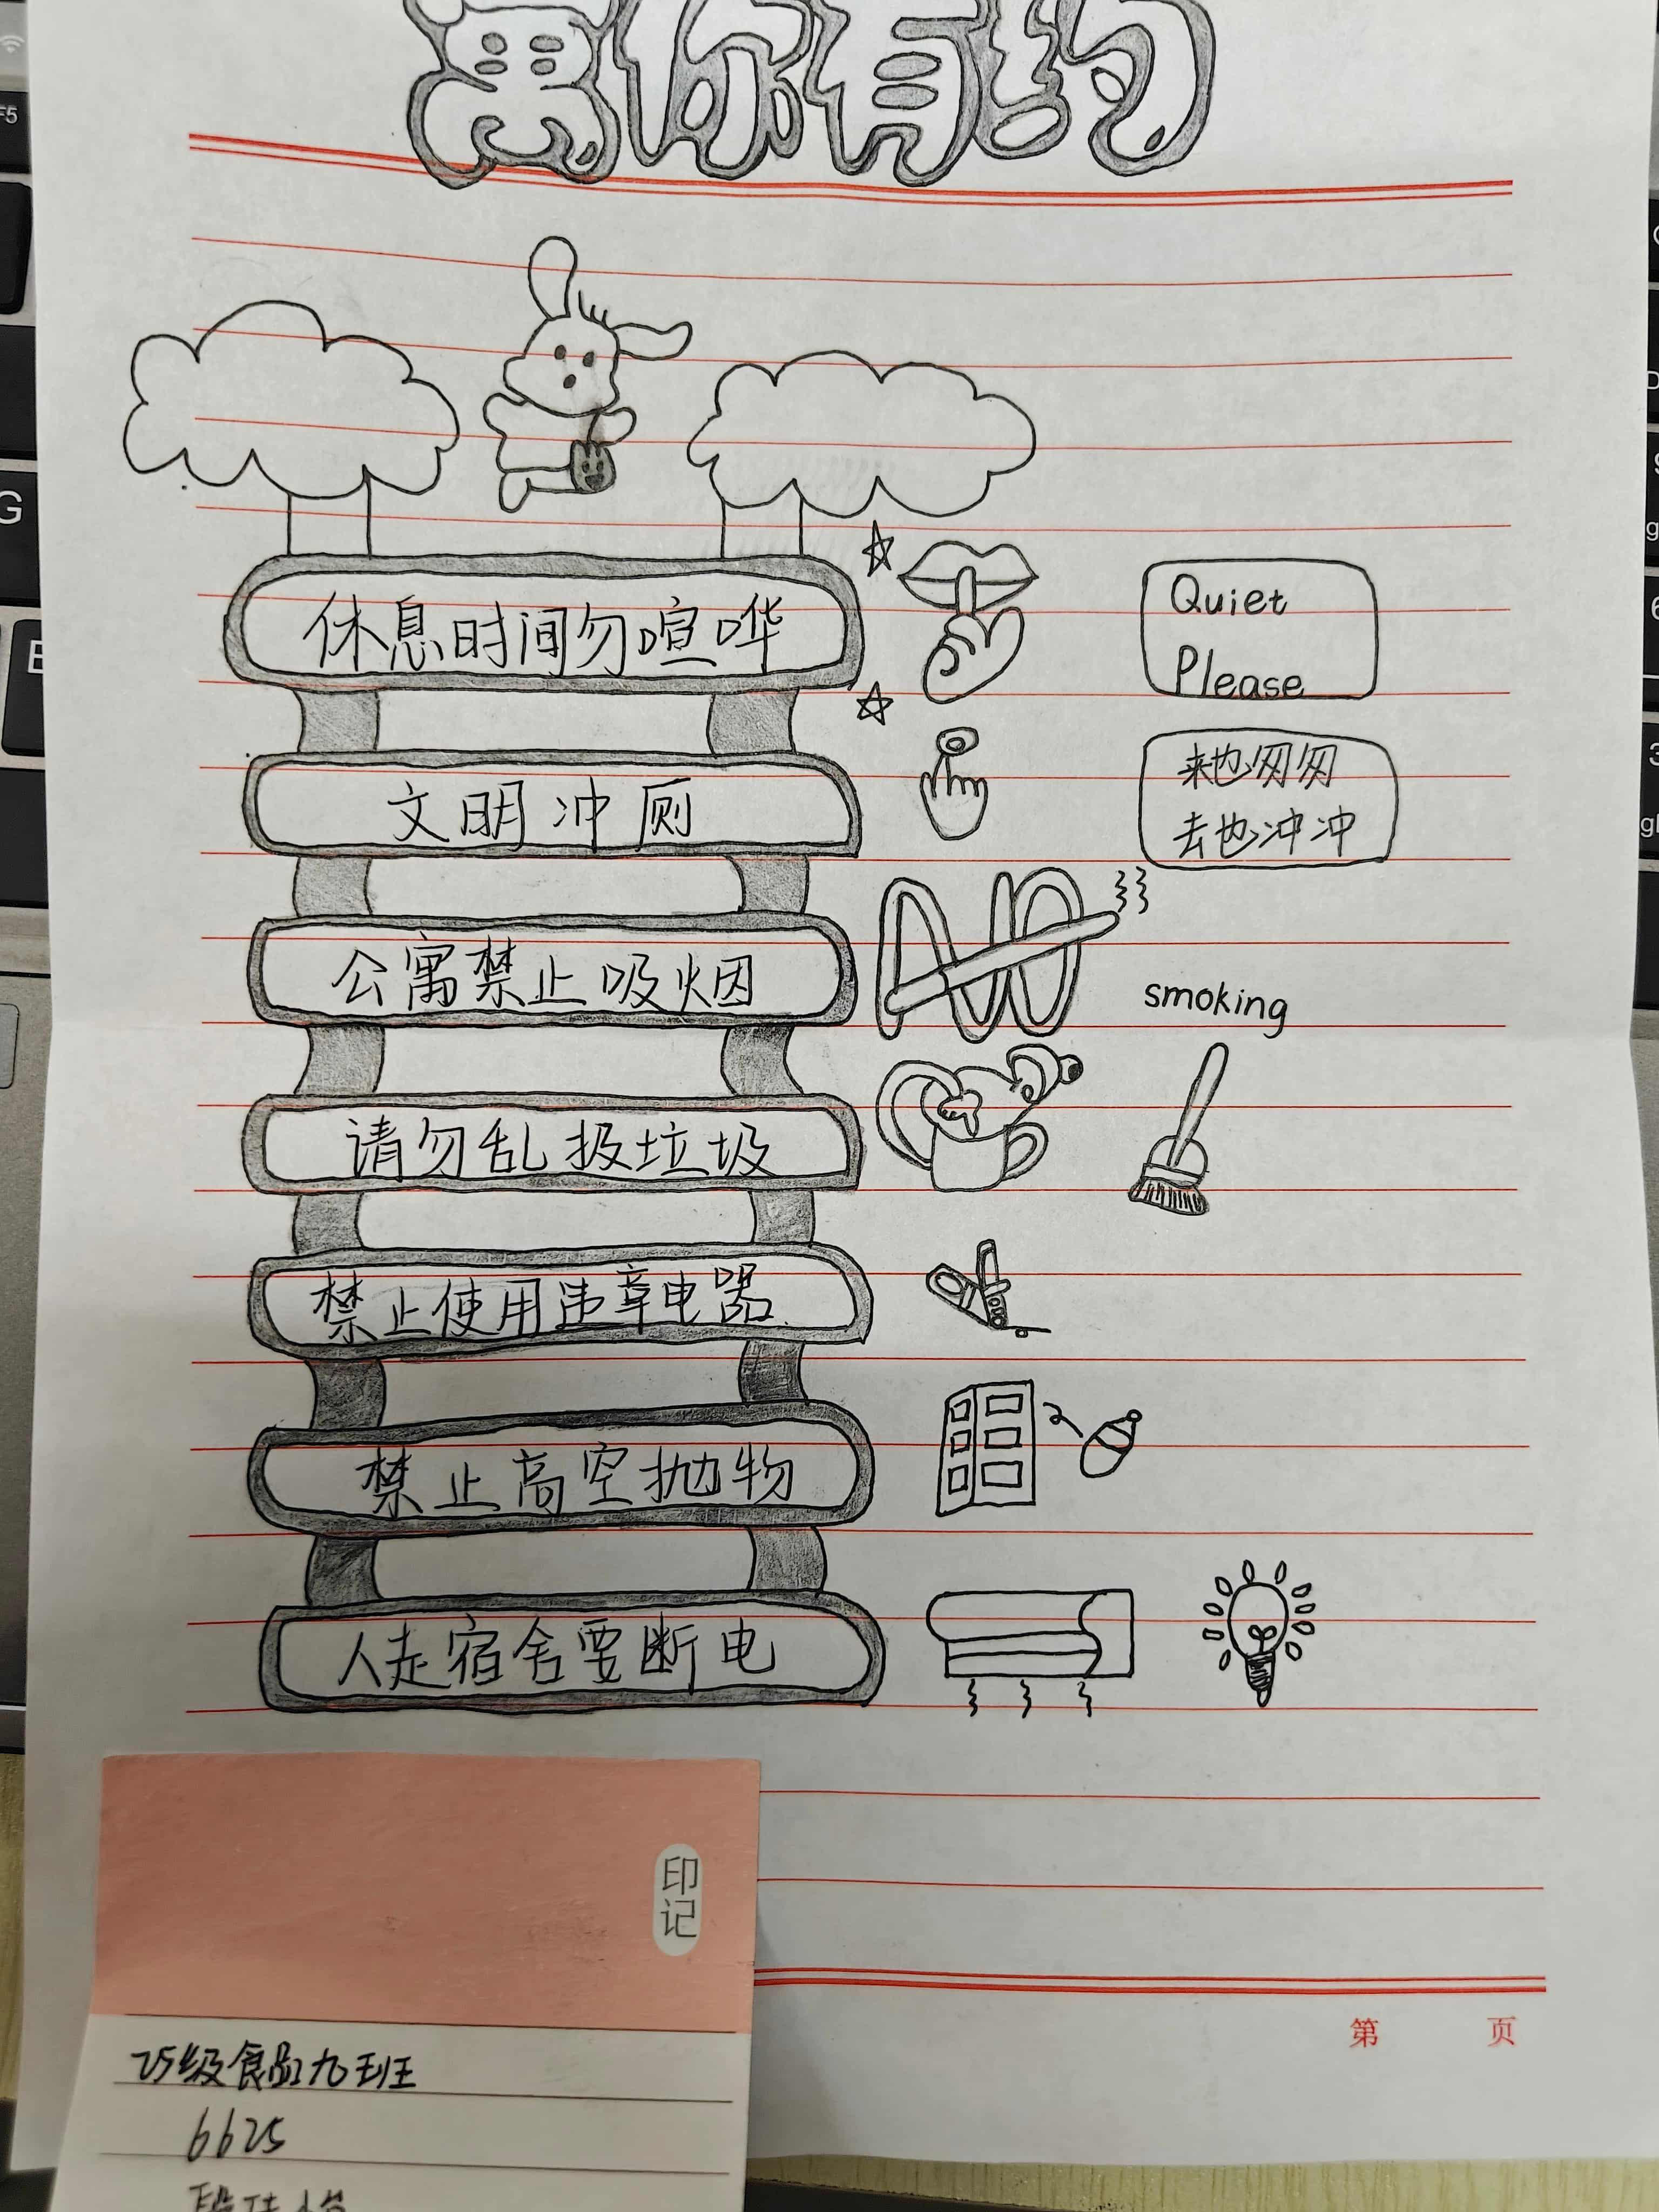 寓你有约
休息时间勿喧哗
Quiet
Please
文明冲厕
来也匆匆
去也冲冲
公寓禁止吸烟
NO
smoking
请勿乱扔垃圾
禁止使用违章电器
禁止高空抛物
人走宿舍要断电
印记
第 页
25级食品九班
6625